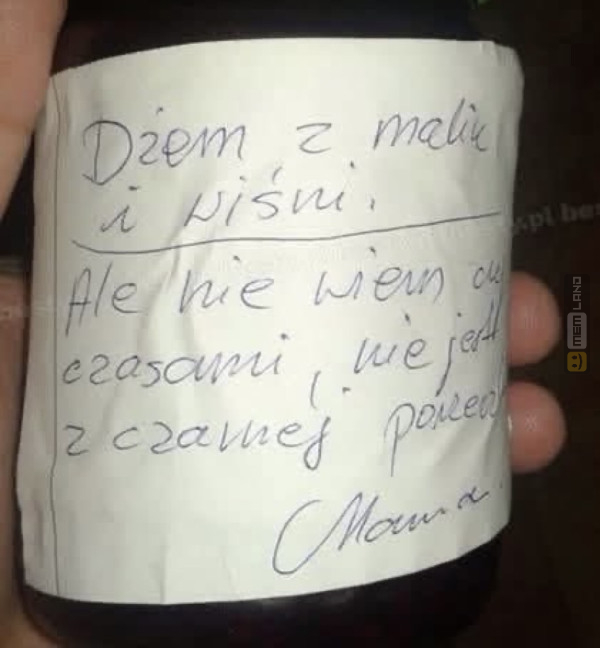 Dżem z malin
i wiśni.
Ale nie wiem
czasami, nie jest
z czarnej
Mama.
MEMLAND